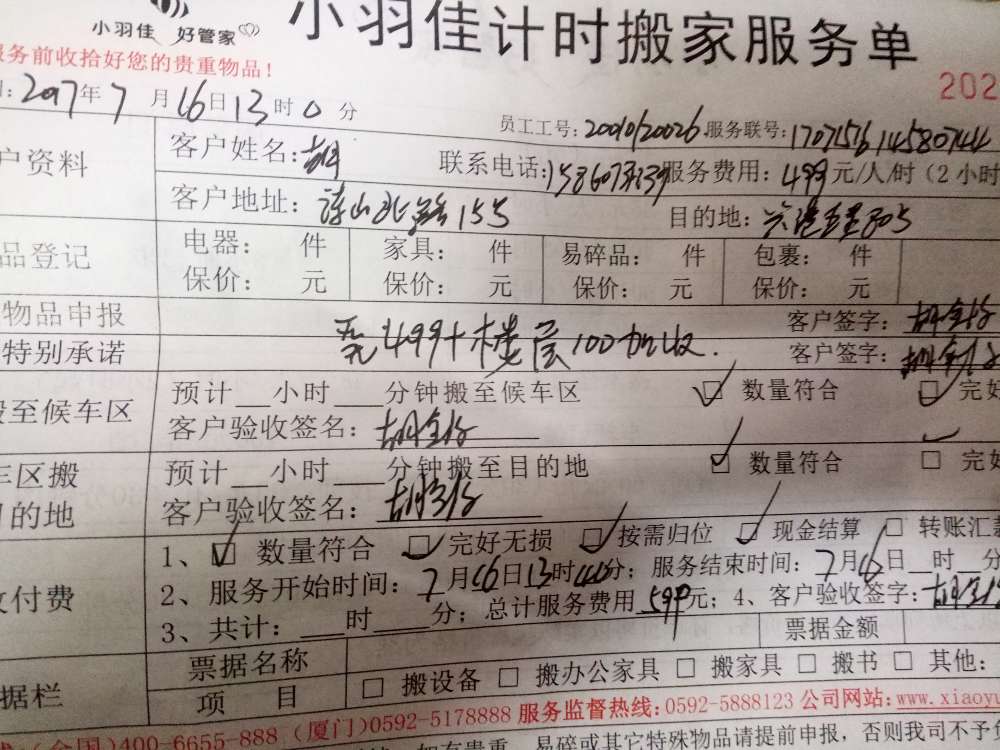 小羽佳 好管家
小羽佳计时搬家服务单
服务前收拾好您的贵重物品！
202
年7月16日13时0分
员工工号：20010/20026 服务联号：
户资料
客户姓名：胡
联系电话： 服务费用：499元/人/时（2小时
客户地址：莲山北路155
目的地：805
品登记
电器： 件 家具： 件 易碎品： 件 包裹： 件
保价： 元 保价： 元 保价： 元 保价： 元
物品申报
客户签字：
特别承诺
499+楼层100加收.
客户签字：
搬至候车区
预计__小时___分钟搬至候车区 数量符合 完好
客户验收签名：
车区搬
目的地
预计__小时___分钟搬至目的地 数量符合 完好
客户验收签名：
付费
1、数量符合 完好无损 按需归位 现金结算 转账汇
2、服务开始时间：7月16日13时44分；服务结束时间：7月16日__时__分
3、共计：___时____分；总计服务费用599元；4、客户验收签字：
票据金额
据栏
票据名称
项 目
搬设备 搬办公家具 搬家具 搬书 其他：
(全国)400-6655-888 (厦门)0592-5178888 服务监督热线：0592-5888123 公司网站：www.xiaoyu
易碎或其它特殊物品请提前申报，否则我司不予